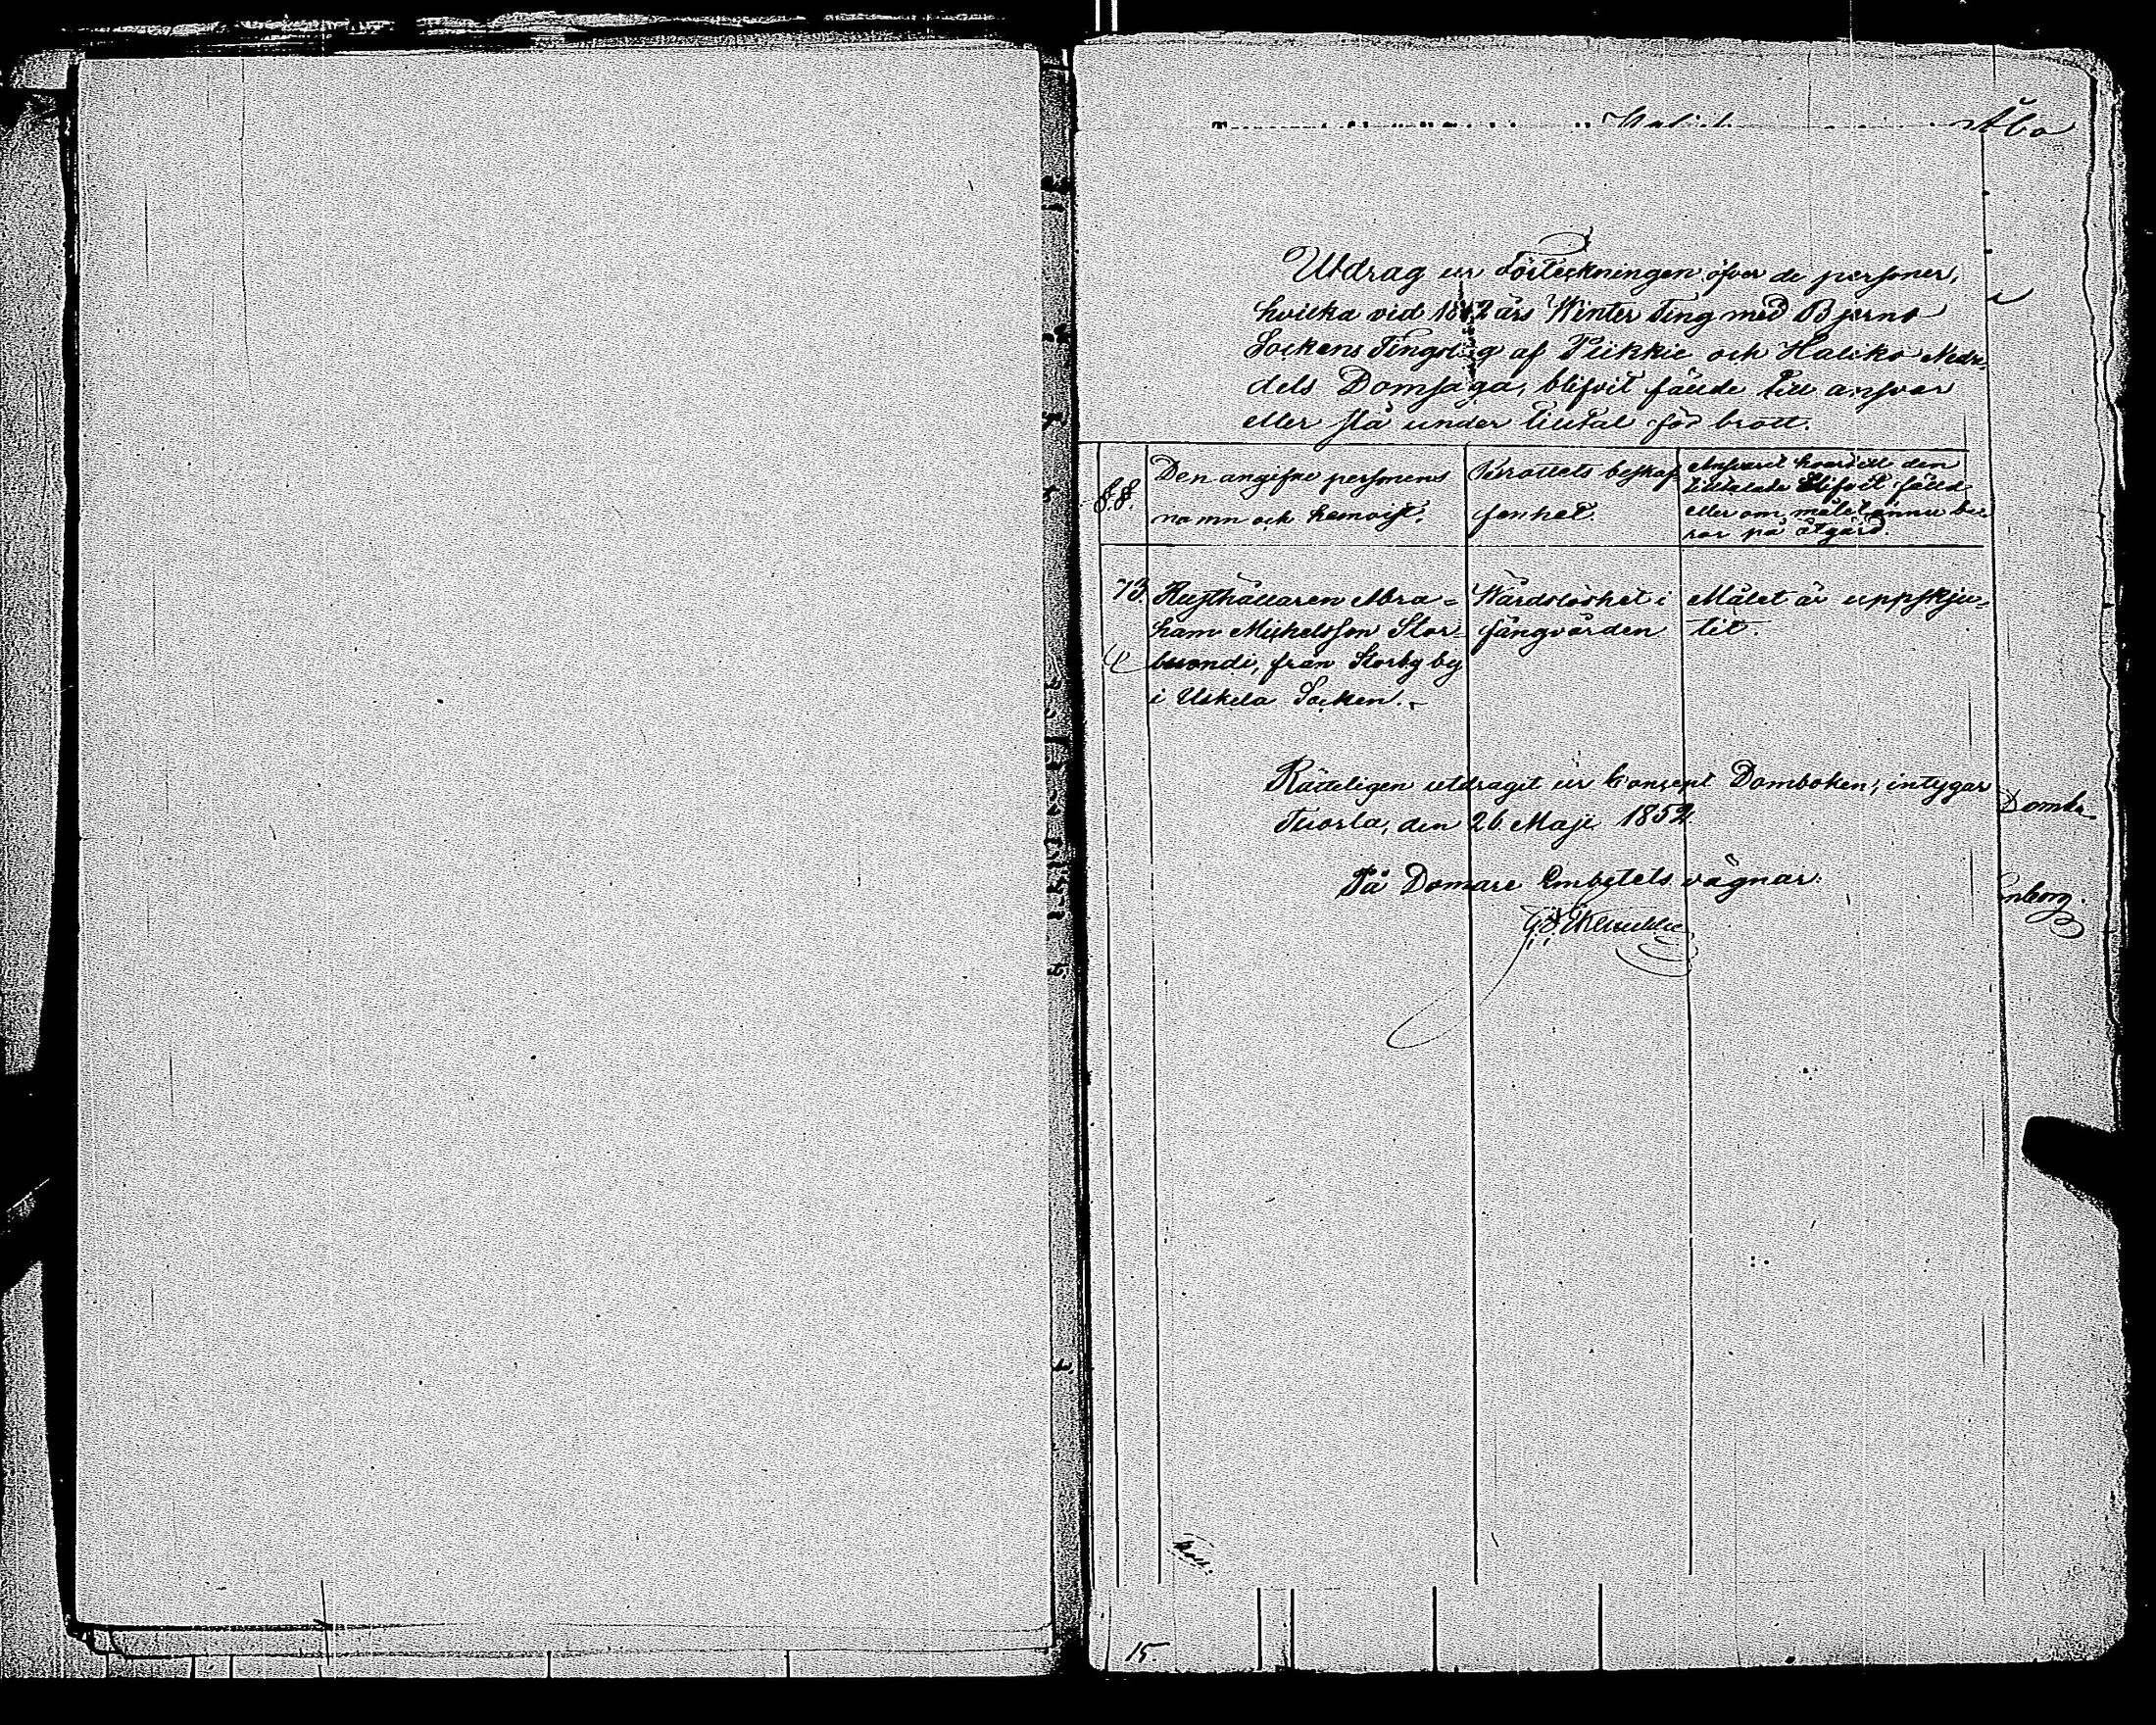 Åbo
Utdrag ur Förteckningen öfver de personer,
hvilka vid 1852 års Winter Ting med Bjerno
Sockens Tingslag af Piikkie och Haliko Nedre
dels Domsaga, blifvit fällde till ansvar
eller stå under tilltal för brott.
§.§.
Den angifne personens
namn och hemvist.
Brottets beskaf-
fenhet.
Ansvaret hvartill den
tilltalade blifvit fälld
eller om målet ännu be-
ror på åtgärd.
73. Rusthållaren Abra-
ham Michelsson Stor-
buondi, från Storby by
i Uskela Socken.
Wårdslöshet i
fångvården
Målet är uppskju-
tit.
Rätteligen utdraget ur Concept Domboken, intygar
Tuorla, den 26 Maji 1852
På Domare Embetets vägnar:
15.